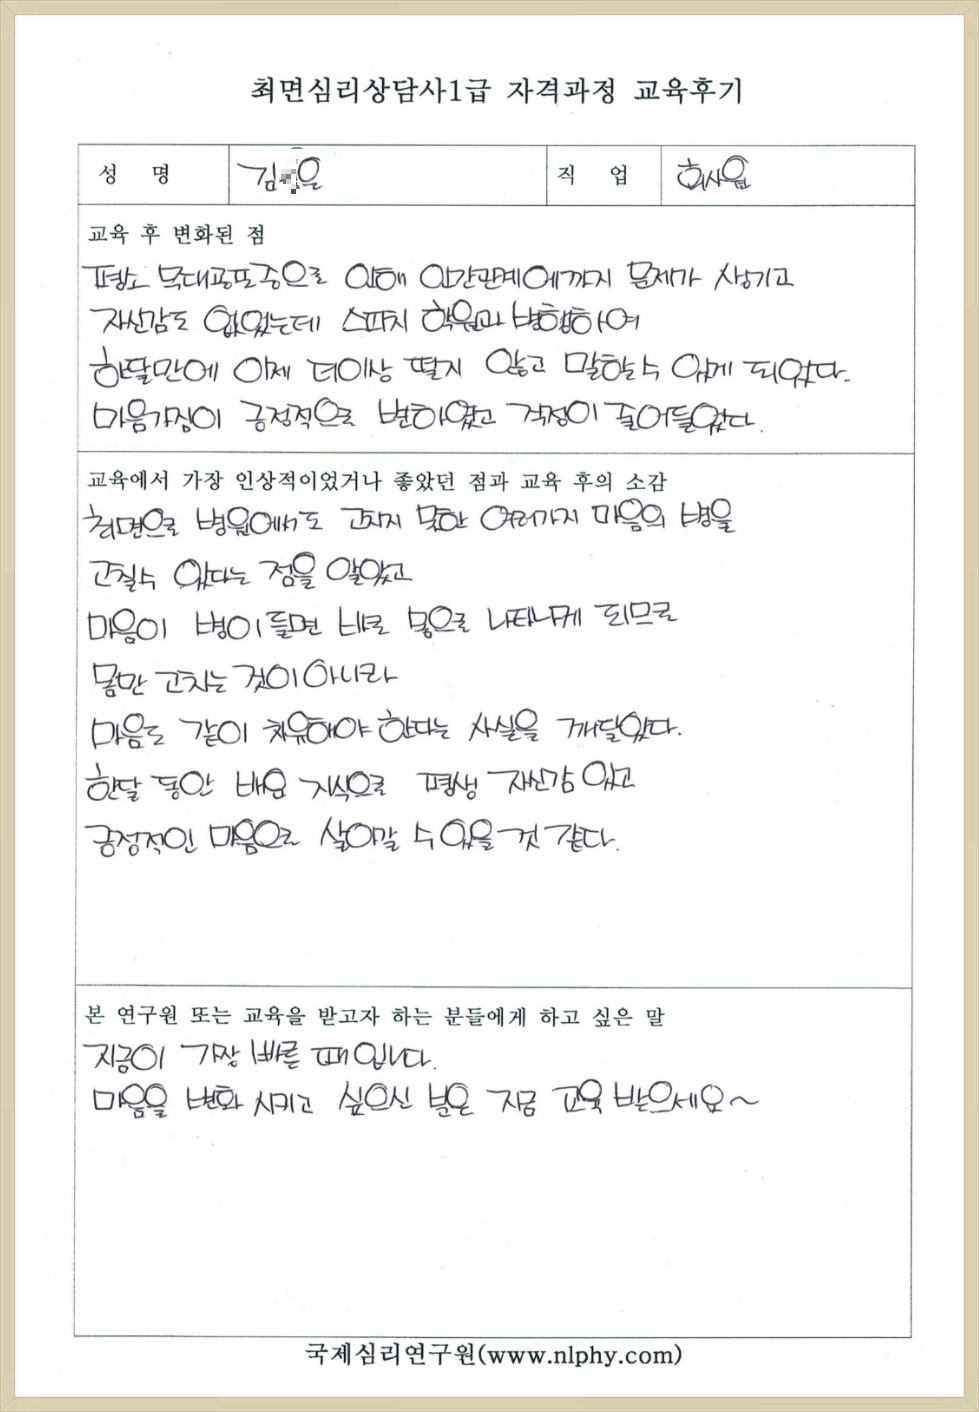 최면심리상담사1급 자격과정 교육후기
성 명 김 을 직 업 회사원
교육 후 변화된 점
평소 무대공포증으로 인해 인간관계에까지 문제가 생기고
자신감도 없었는데 스피치 학원과 병행하여
한달만에 이제 더이상 떨지 않고 말할수 있게 되었다.
마음가짐이 긍정적으로 변하였고 걱정이 줄어들었다.
교육에서 가장 인상적이었거나 좋았던 점과 교육 후의 소감
최면으로 병원에서도 고치지 못한 여러가지 마음의 병을
고칠수 있다는 점을 알았고
마음이 병이 들면 바로 몸으로 나타나게 되므로
몸만 고치는 것이 아니라
마음도 같이 치유해야 한다는 사실을 깨달았다.
한달 동안 배운 지식으로 평생 자신감 있고
긍정적인 마음으로 살아갈 수 있을 것 같다.
본 연구원 또는 교육을 받고자 하는 분들에게 하고 싶은 말
지금이 가장 빠를 때입니다.
마음을 변화 시키고 싶으신 분은 지금 교육 받으세요~
국제심리연구원(www.nlphy.com)